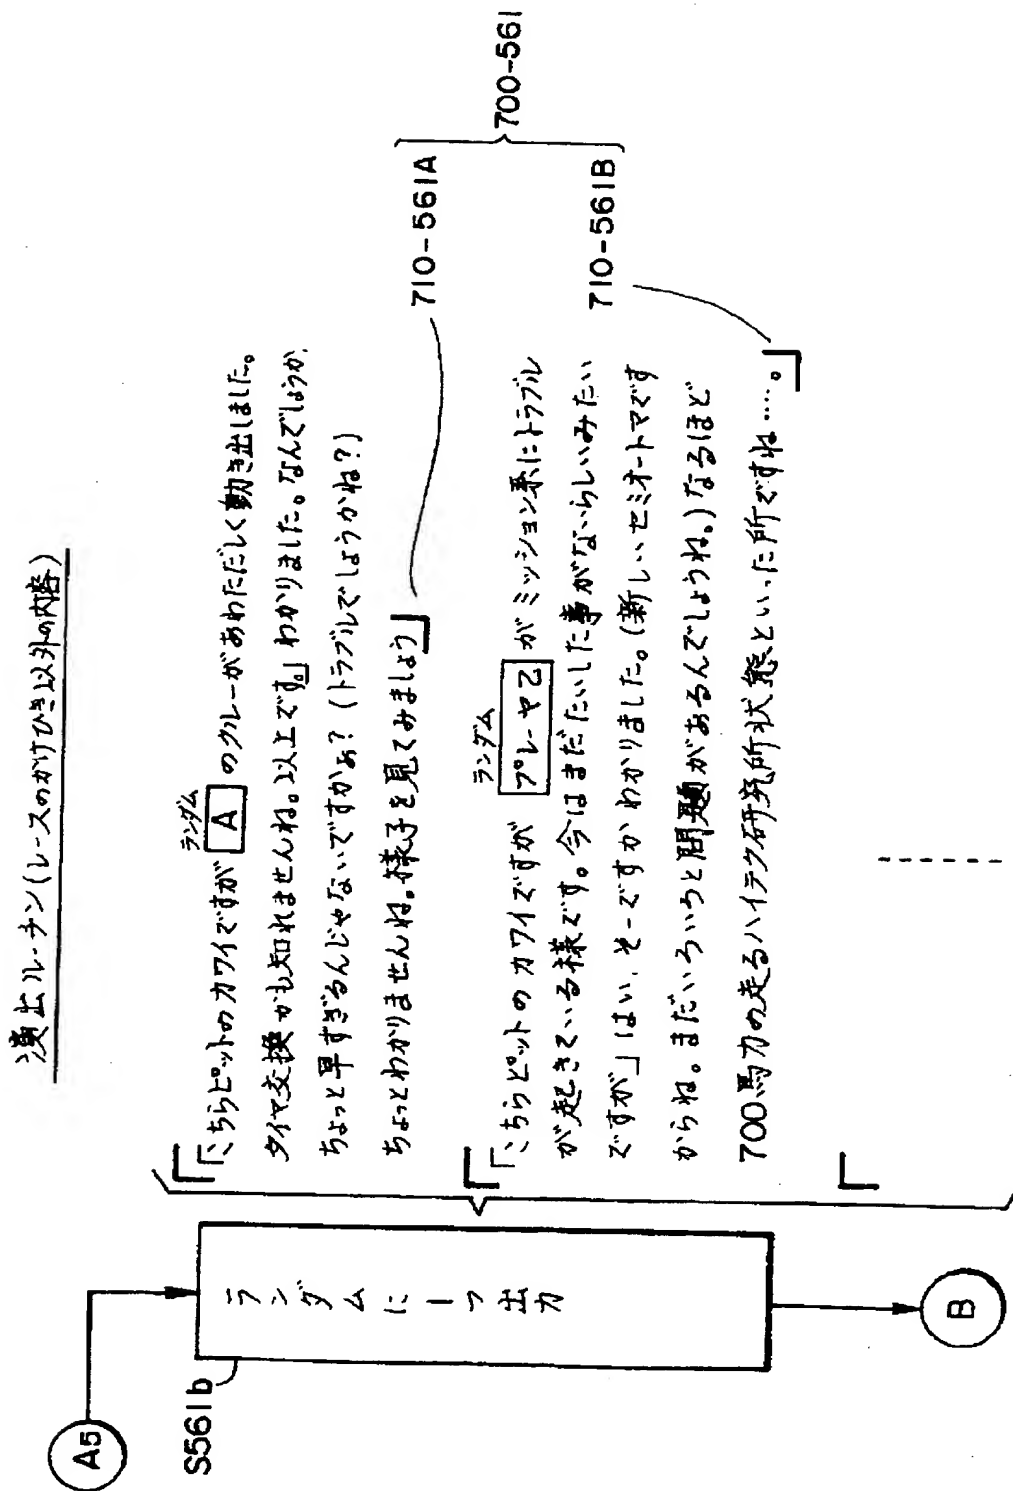 演出ルーチン(レースのかけひき以外の内容)
A5
S561b
ランダムに1つ出力
B
ランダム
「こちらピットのカワイですが A のクルーがあわただしく動き出しました。
タイヤ交換かも知れませんね。以上です。」わかりました。なんでしょうか、
ちょっと早すぎるんじゃないですかぁ?(トラブルでしょうかね?)
ちょっとわかりませんね。様子を見てみましょう」
710-561A
ランダム
「こちらピットのカワイですが プレーヤ2 がミッション系にトラブル
が起きている様です。今はまだたいした事がないらしいみたい
ですが」はい、そーですかわかりました。(新しいセミオートマです
からね。まだいろいろと問題があるんでしょうね。)なるほど
700馬力の走るハイテク研究所状態といった所ですね……。」
710-561B
700-561